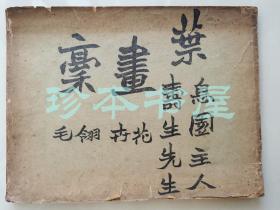 葉
鳥國主人
壽生先生
畫稾
花卉翎毛
珍本书屋